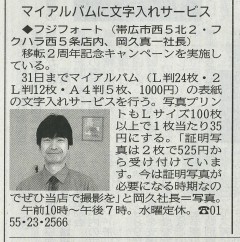 マイアルバムに文字入れサービス
◆フジフォート（帯広市西5北2・フ
クハラ西5条店内、岡久真一社長）
移転2周年記念キャンペーンを実施し
ている。
31日までマイアルバム（L判24枚・2
L判12枚・A4判5枚、1000円）の表紙
の文字入れサービスを行う。写真プリント
もLサイズ100枚
以上で1枚当たり35
円にする。「証明写
真は2枚で525円か
ら受け付けていま
す。今は証明写真が
必要になる時期なの
でぜひ当店で撮影を」と岡久社長＝写真。
午前10時～午後7時。水曜定休。☎01
55・23・2566